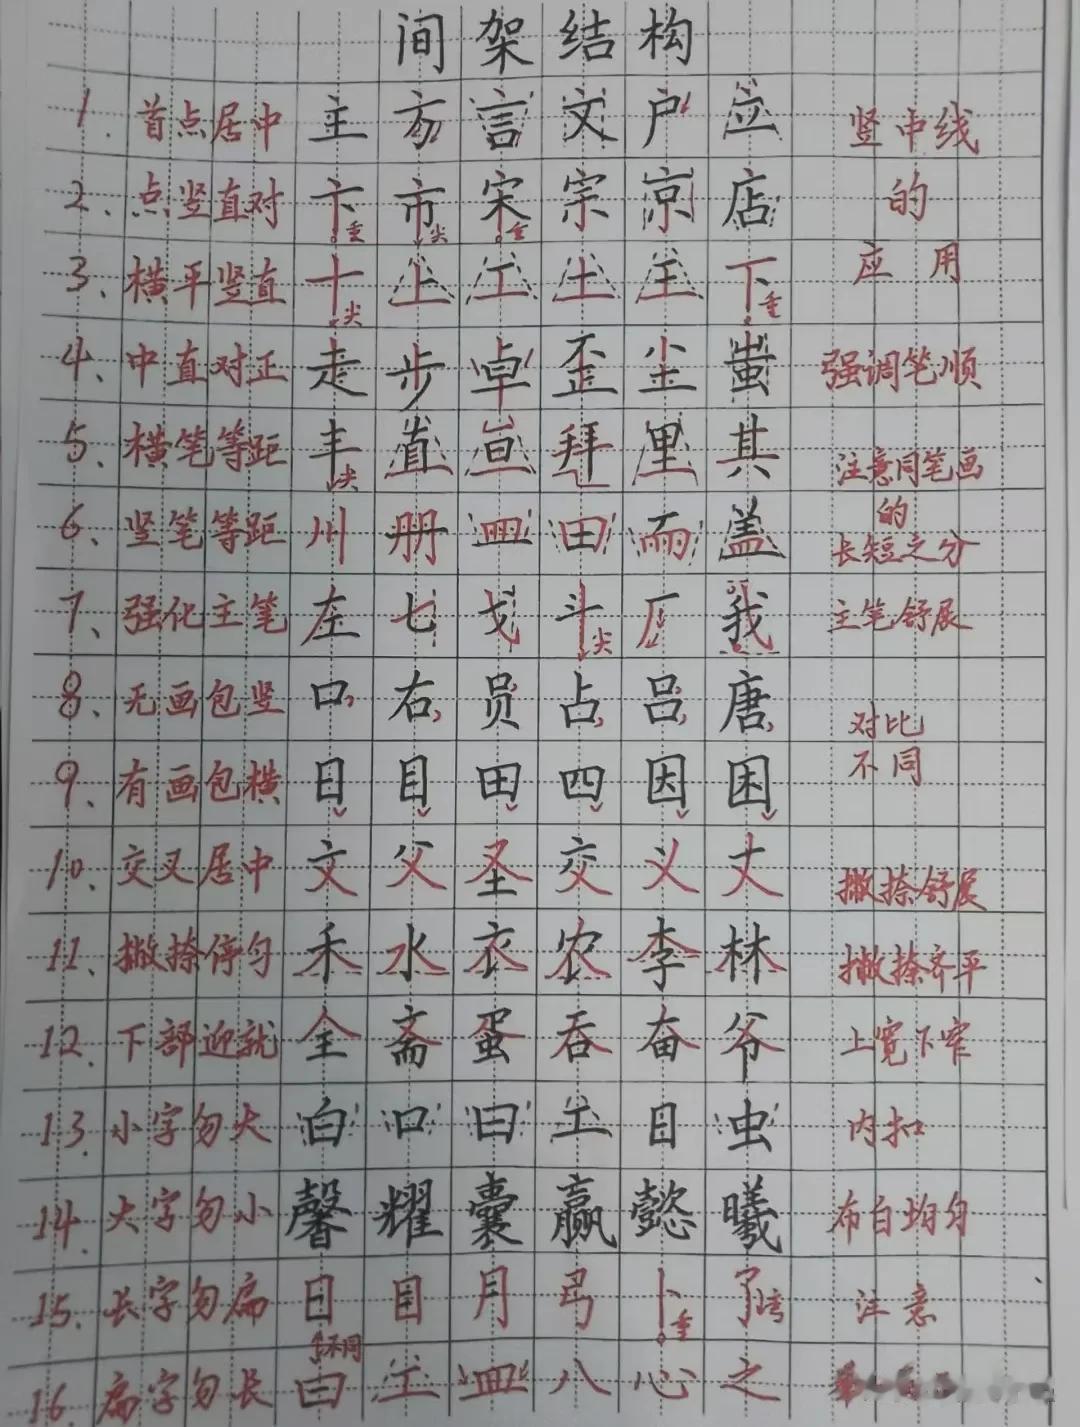 间架结构
1. 首点居中 主方言文户应 竖中线
2. 点竖直对 卞市宋宗京店 的
重 尖 重
3、横平竖直 十上工土王下 应用
尖 重
4、中直对正 走步卓歪尘蚩 强调笔顺
5、横笔等距 丰直亘拜里其 注意同笔画
尖 的
6、竖笔等距 川册皿田而盖 长短之分
7、强化主笔 左七戈斗厂我 主笔舒展
尖
8、无画包竖 口右员占吕唐 对比
9、有画包横 日目田四因困 不同
10、交叉居中 文父圣交义丈 撇捺舒展
11、撇捺停匀 禾水衣农李林 撇捺齐平
12、下部迎就 全斋蛋吞奋爷 上宽下窄
13、小字勿大 白口曰工日虫 内扣
14、大字勿小 馨耀囊赢懿曦 布白均匀
15、长字勿扁 日目月弓卜了 注意
不同 重 弯
16、扁字勿长 曰工皿八心之